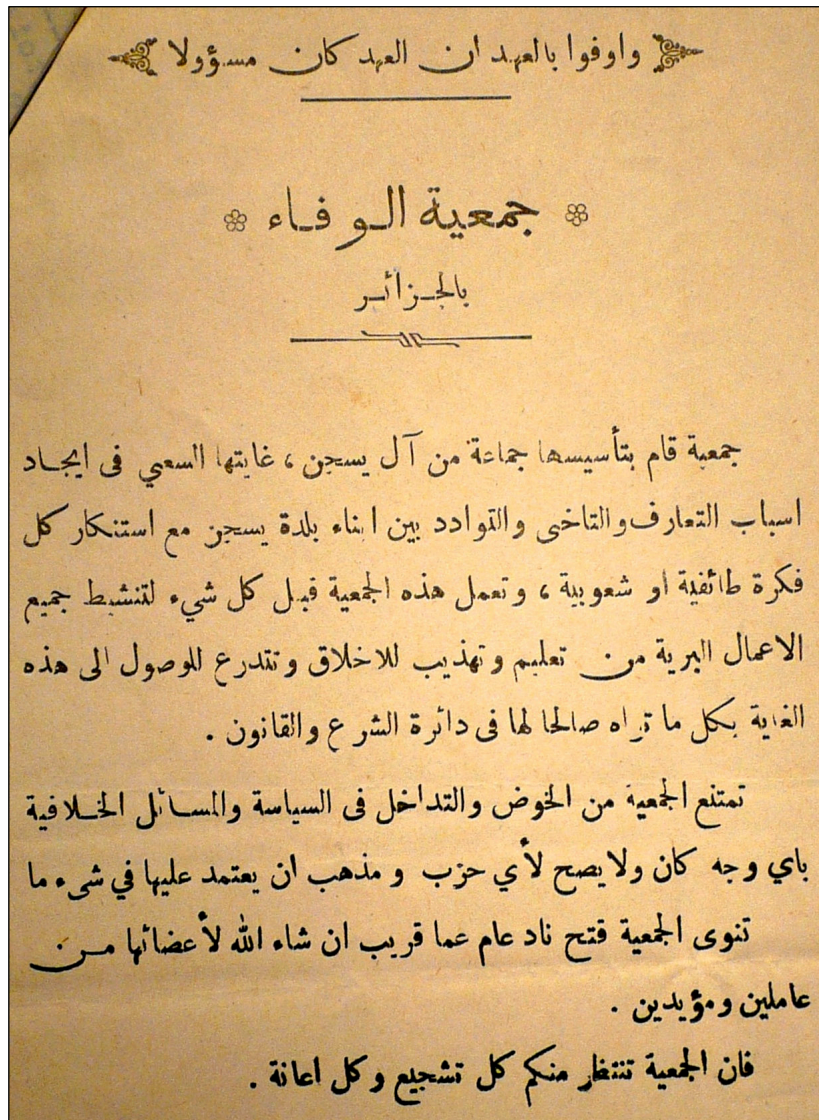 واوفوا بالعهد ان العهد كان مسؤولا
جمعية الوفاء
بالجزائر
جمعية قام بتأسيسها جماعة من آل يسجن ، غايتها السعي فى ايجاد
اسباب التعارف والتاخى والتوادد بين ابناء بلدة يسجن مع استنكار كل
فكرة طائفية او شعوبية ، وتعمل هذه الجمعية قبل كل شيء لتنشيط جميع
الاعمال البرية من تعليم وتهذيب للاخلاق وتتدرع للوصول الى هذه
الغاية بكل ما تراه صالحا لها فى دائرة الشرع والقانون .
تمتنع الجمعية من الخوض والتداخل فى السياسة والمسائل الخلافية
باي وجه كان ولا يصح لأي حزب و مذهب ان يعتمد عليها في شىء ما
تنوى الجمعية فتح ناد عام عما قريب ان شاء الله لأعضائها من
عاملين ومؤيدين .
فان الجمعية تنتظر منكم كل تشجيع وكل اعانة .